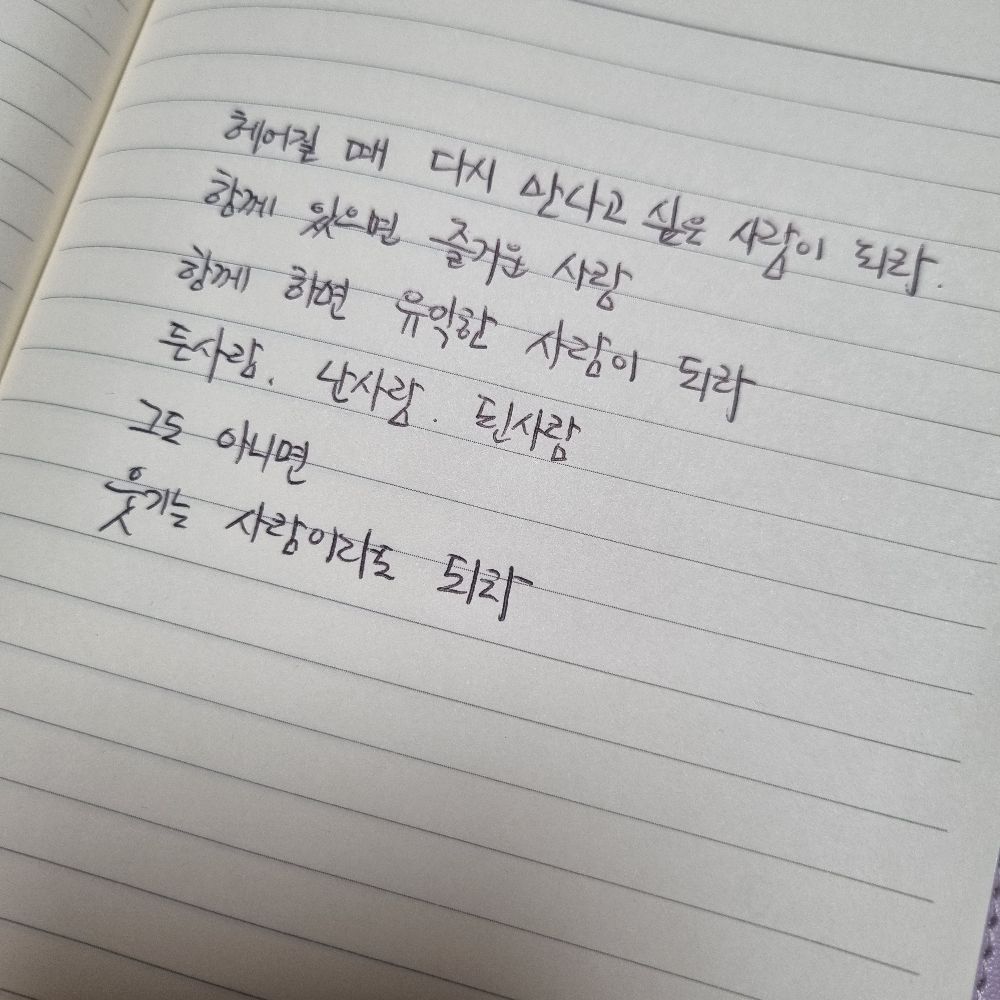 헤어질 때 다시 만나고 싶은 사람이 되라.
함께 있으면 즐거운 사람
함께 하면 유익한 사람이 되라
든사람. 난사람. 된사람
그도 아니면
웃기는 사람이라도 되라